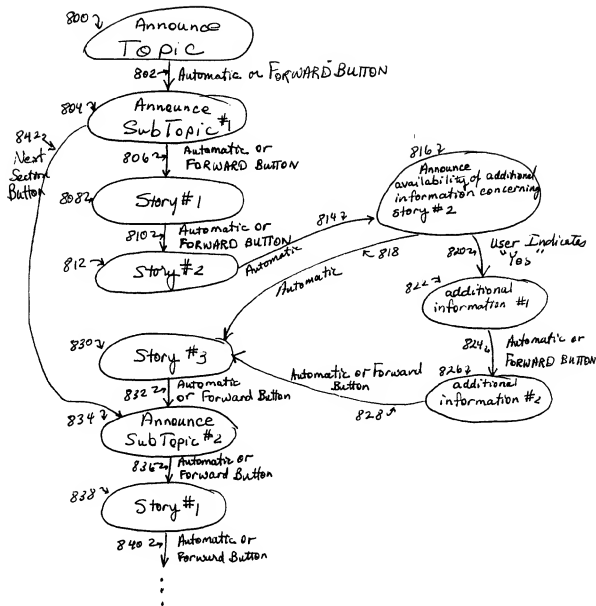 800
Announce
Topic
802
Automatic or FORWARD BUTTON
804
Announce
SubTopic #1
842
Next
Section
Button
806
Automatic or
FORWARD BUTTON
808
Story #1
810
Automatic or
FORWARD BUTTON
812
Story #2
814
Automatic
816
Announce
availability of additional
information concerning
story #2
818
Automatic
820
User Indicates
"Yes"
822
additional
information #1
824
Automatic or
FORWARD BUTTON
826
additional
information #2
Automatic or Forward
Button
828
830
Story #3
832
Automatic
or Forward Button
834
Announce
SubTopic #2
836
Automatic or
Forward Button
838
Story #1
840
Automatic or
Forward Button